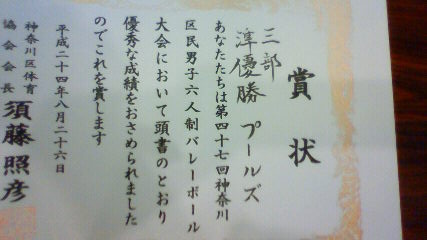 賞状
三部
準優勝 プールズ
あなたたちは第四十七回神奈川
区民男子六人制バレーボール
大会において頭書のとおり
優秀な成績をおさめられました
のでこれを賞します
平成二十四年八月二十六日
神奈川区体育
協会会長 須藤照彦